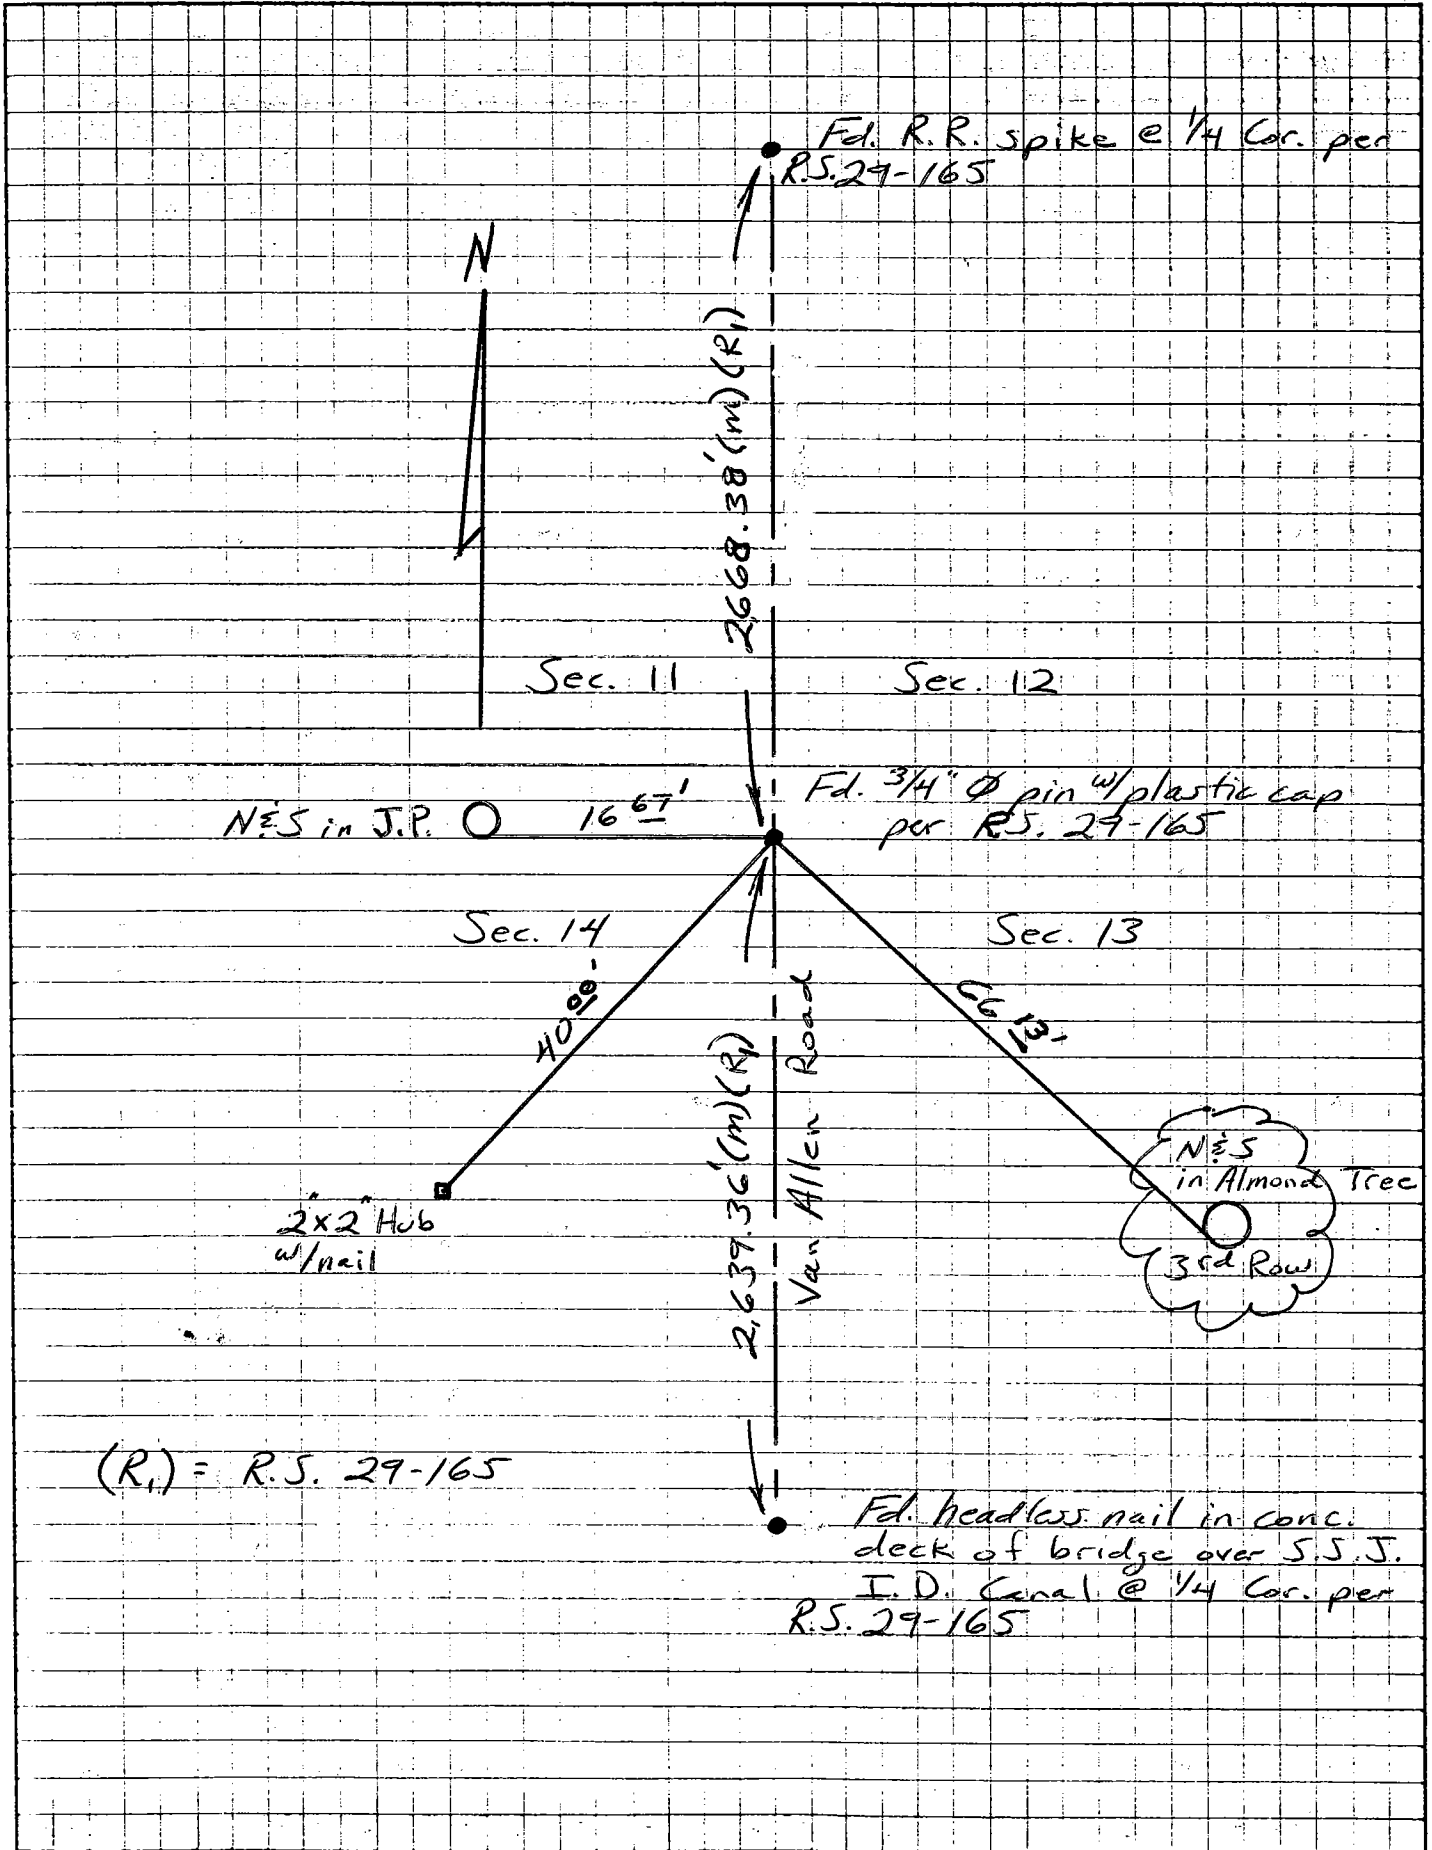 Fd. R.R. spike @ 1/4 Cor. per
R.S. 29-165
N
2668.38' (m) (R1)
Sec. 11
Sec. 12
Fd. 3/4" Ø pin w/ plastic cap
per R.S. 29-165
N & S in J.P.
16 67'
Sec. 14
Sec. 13
40 00'
66 13'
2,639.36' (m) (R1)
Van Allen Road
N & S
in Almond Tree
3rd Row
2" x 2" Hub
w/ nail
(R1) = R.S. 29-165
Fd. headless nail in conc.
deck of bridge over S.S.J.
I.D. Canal @ 1/4 Cor. per
R.S. 29-165